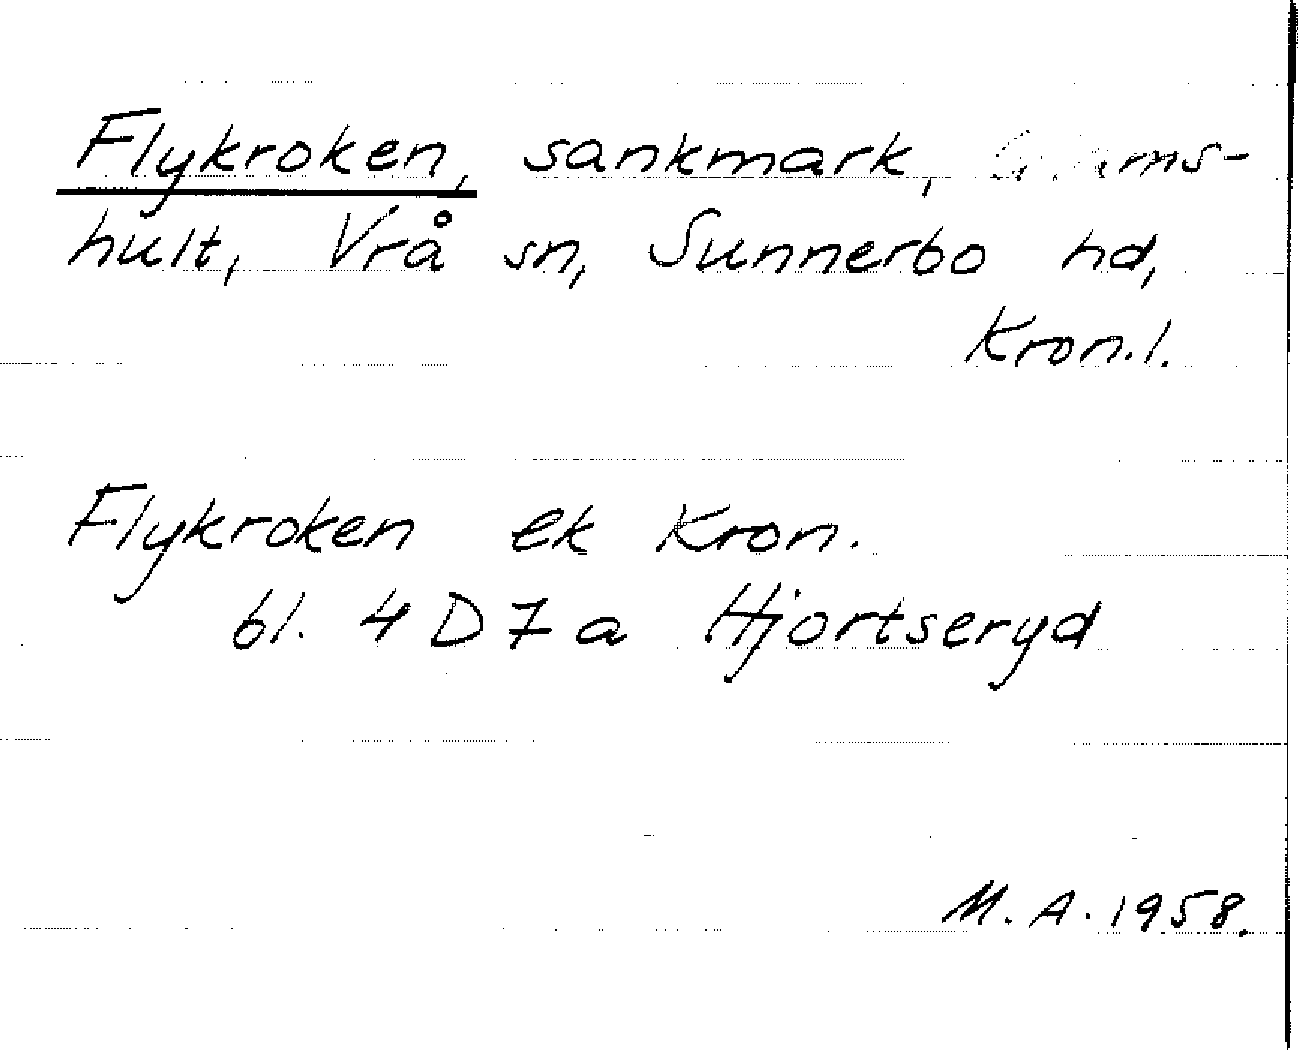 Flykroken, sankmark,
hult, Vrå sn, Sunnerbo hd,
Kron.l.
Flykroken ek Kron.
bl. 4 D 7 a Hjortseryd
M. A. 1958.